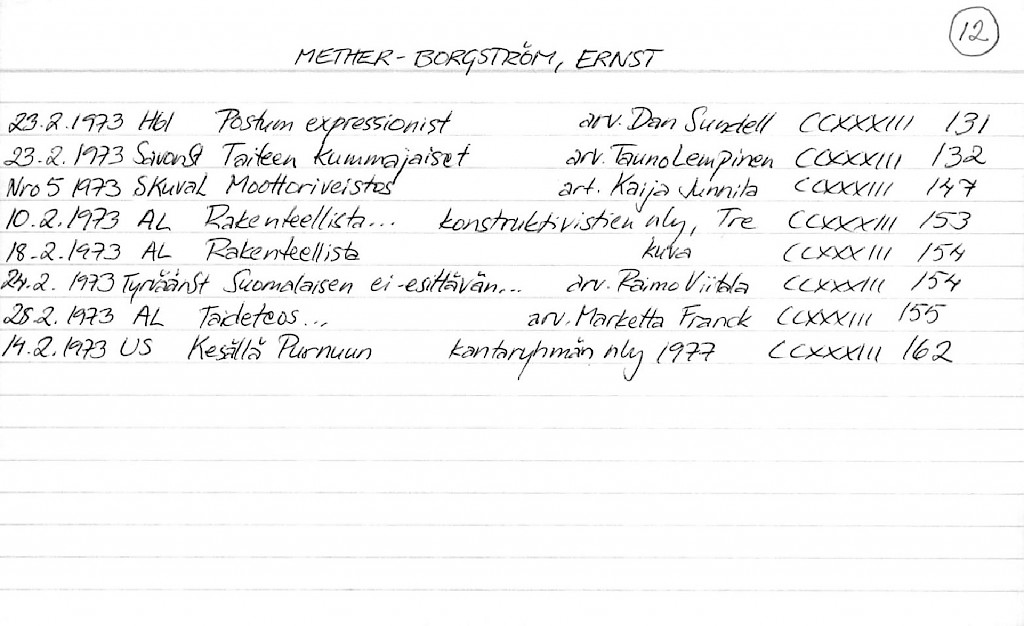 12
METHER-BORGSTRÖM, ERNST
23.2.1973 Hbl Postum expressionist arv. Dan Sundell CCXXXIII 131
23.2.1973 SavonSt Taiteen kummajaiset arv. Tauno Lempinen CCXXXIII 132
Nro 5 1973 SKuvaL Moottoriveistos art. Kaija Junnila CCXXXIII 147
10.2.1973 AL Rakenteellista... konstruktivistien nly, Tre CCXXXIII 153
18.2.1973 AL Rakenteellista kuva CCXXXIII 154
24.2.1973 TyrväänSt Suomalaisen ei-esittävän... arv. Raimo Viitala CCXXXIII 154
28.2.1973 AL Taideteos... arv. Marketta Franck CCXXXIII 155
14.2.1973 US Kesällä Purnuun kantaryhmän nly 1977 CCXXXIII 162